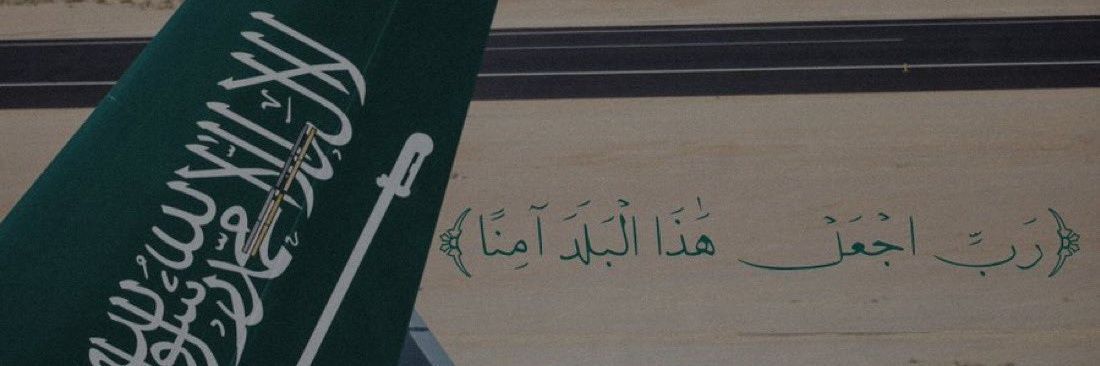 لا إله إلا الله محمد رسول الله
﴿رَبِّ اجْعَلْ هَٰذَا الْبَلَدَ آمِنًا﴾